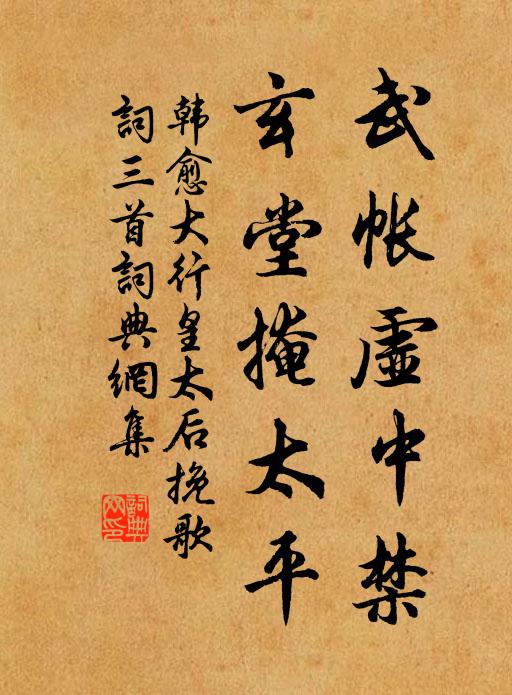 武帐虛中禁
玄堂掩太平
韩愈大行皇太后挽歌
詞三首詞典網集
詞典网印